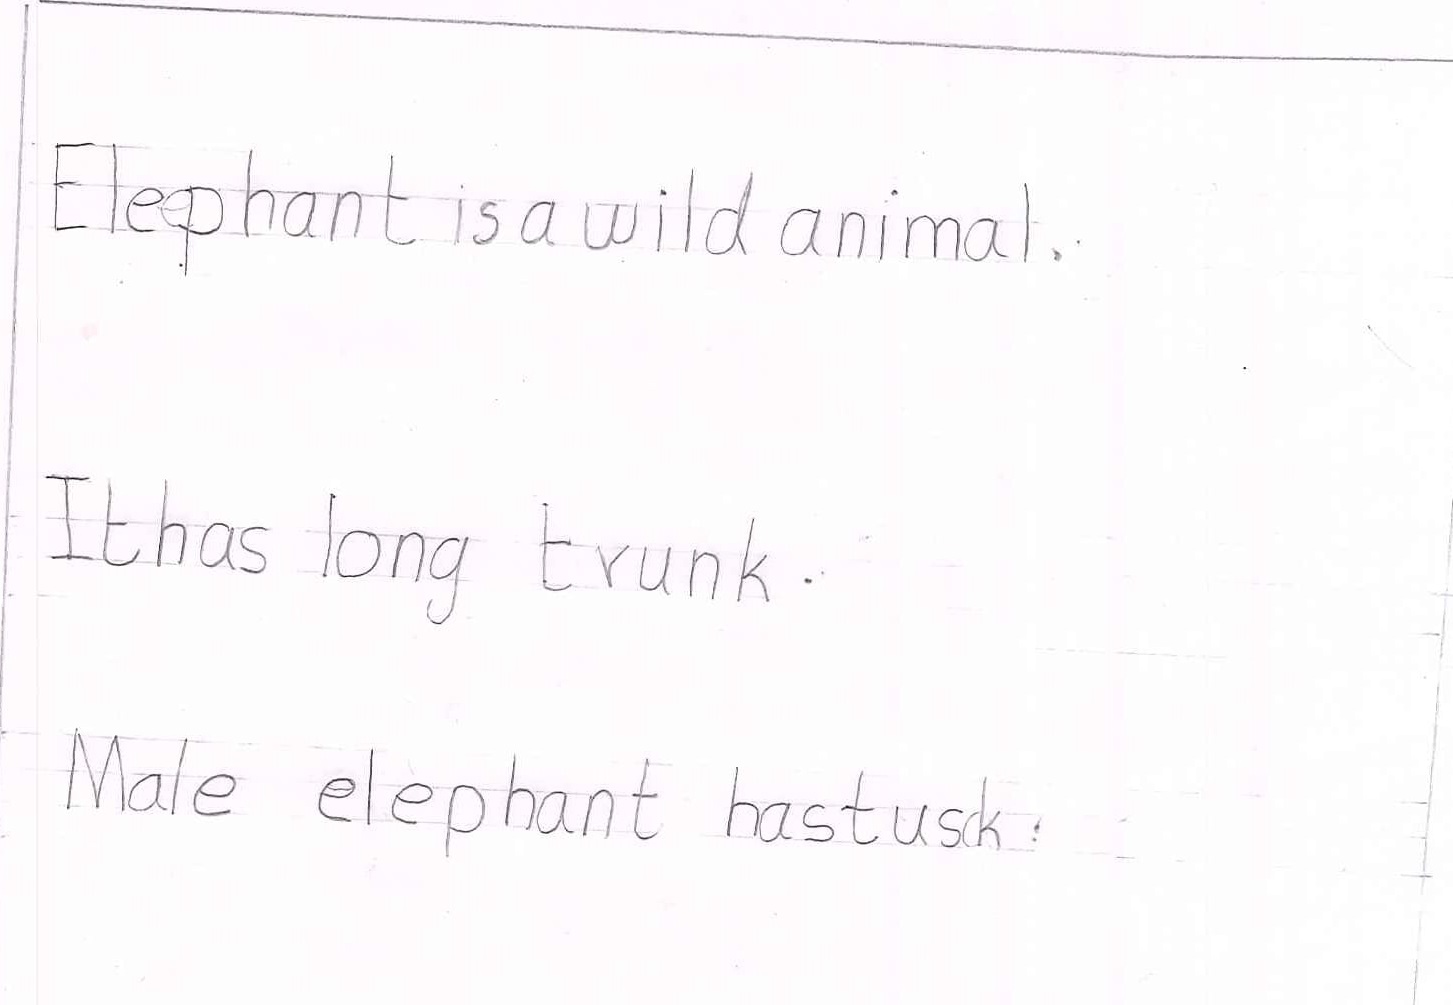 Elephant is a wild animal.
It has long trunk.
Male elephant has tusk.